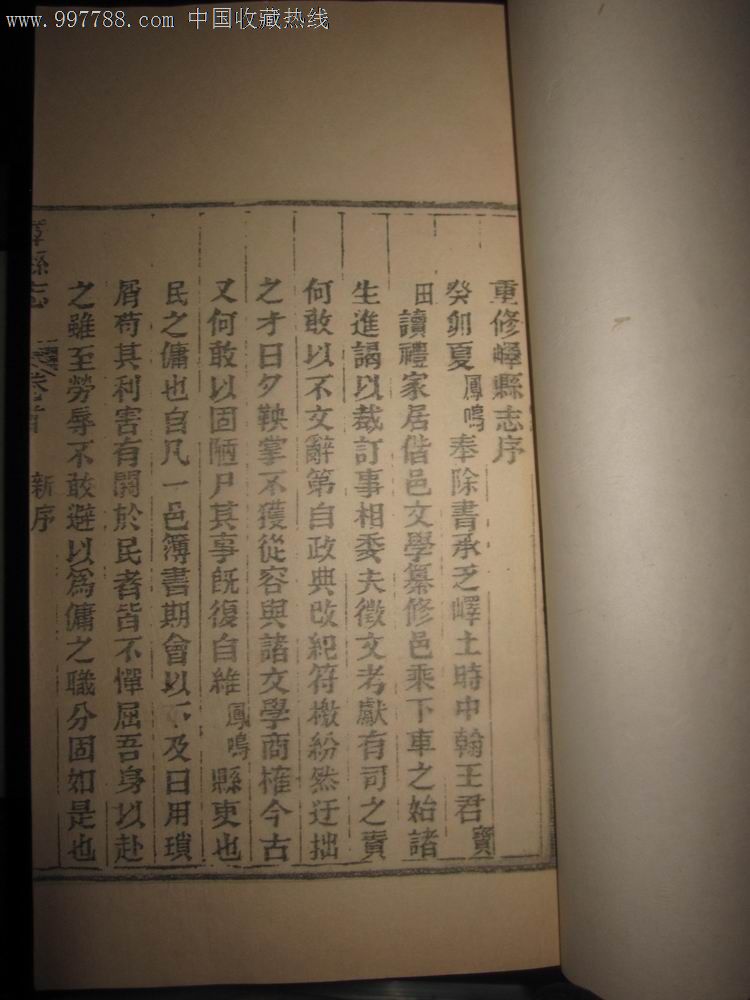 www.997788.com 中国收藏热线
重修嶧縣志序
癸卯夏鳳鳴奉除書承乏嶧土時中翰王君寶
田讀禮家居偕邑文學纂修邑乘下車之始諸
生進謁以裁訂事相委夫徵文考獻有司之責
何敢以不文辭第自政典改紀符檄紛然迂拙
之才日夕鞅掌不獲從容與諸文學商榷今古
又何敢以固陋尸其事既復自維鳳鳴縣吏也
民之傭也自凡一邑簿書期會以下及日用瑣
屑苟其利害有關於民者皆不憚屈吾身以赴
之雖至勞辱不敢避以為傭之職分固如是也
縣志 卷首 新序